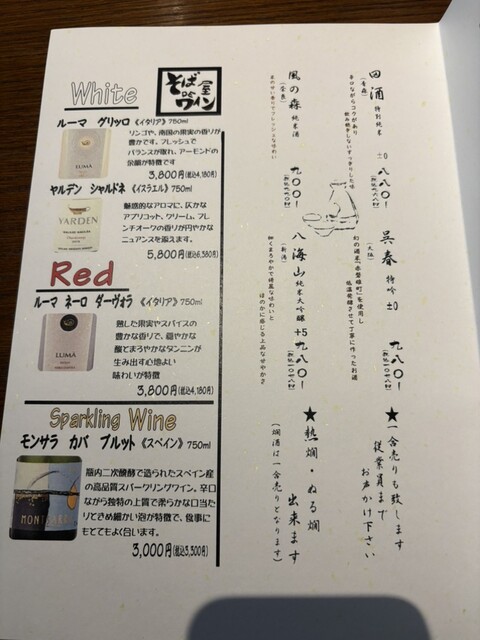 White
そば屋
de
ワイン
ルーマ グリッロ《イタリア》750ml
リンゴや、南国の果実の香りが
豊かです。フレッシュで
バランスが取れ、アーモンドの
余韻が特徴です
3,800円(税込4,180円)
LUMÀ
ヤルデン シャルドネ《イスラエル》750ml
魅惑的なアロマに、仄かな
アプリコット、クリーム、フレ
ンチオークの香りが円やかな
ニュアンスを添えます。
5,800円(税込6,380円)
YARDEN
Red
ルーマ ネーロ ダーヴォラ《イタリア》750ml
熟した果実やスパイスの
豊かな香りで、穏やかな
酸とまろやかなタンニンが
生み出す心地よい
味わいが特徴
3,800円(税込4,180円)
LUMÀ
Sparkling Wine
モンサラ カバ ブルット《スペイン》750ml
瓶内二次醗酵で造られたスペイン産
の高品質スパークリングワイン。辛口
ながら独特の上質で柔らかな口当た
りときめ細かい泡が特徴で、食事に
もとてもよく合います。
3,000円(税込3,300円)
田酒 特別純米 ±0 八八〇
(青森)
呉春 特吟 ±0 九八〇
(大阪)
幻の酒米「赤磐雄町」を使用し
低温発酵させて丁寧に作ったお酒
風の森 純米酒 九〇〇
(奈良)
八海山 純米大吟醸 +5 九八〇
(新潟)
細くまろやかで綺麗な味わいと
ほのかに感じる上品なせやかさ
★一合売りも致します
従業員まで
お声かけ下さい
★熱燗・ぬる燗
出来ます
(燗酒は一合売りとなります)